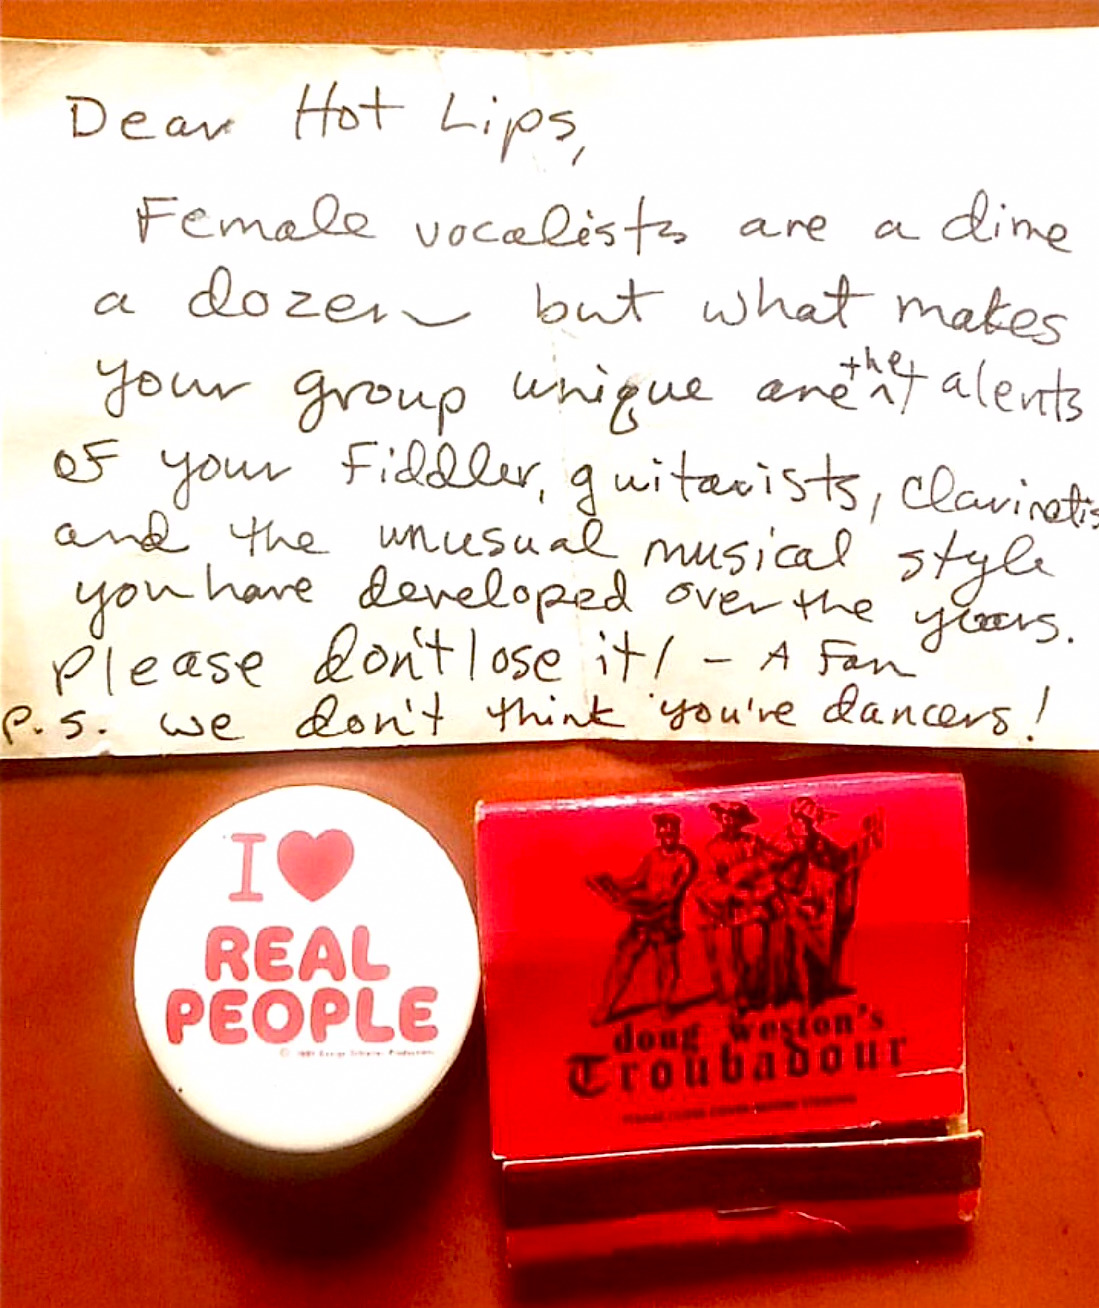 Dear Hot Lips,
Female vocalists are a dime
a dozen but what makes
your group unique are the talents
of your fiddler, guitarists, clarinetis
and the unusual musical style
you have developed over the years.
Please don't lose it! - A Fan
P.S. we don't think you're dancers!
I ♥
REAL
PEOPLE
doug weston's
Troubadour